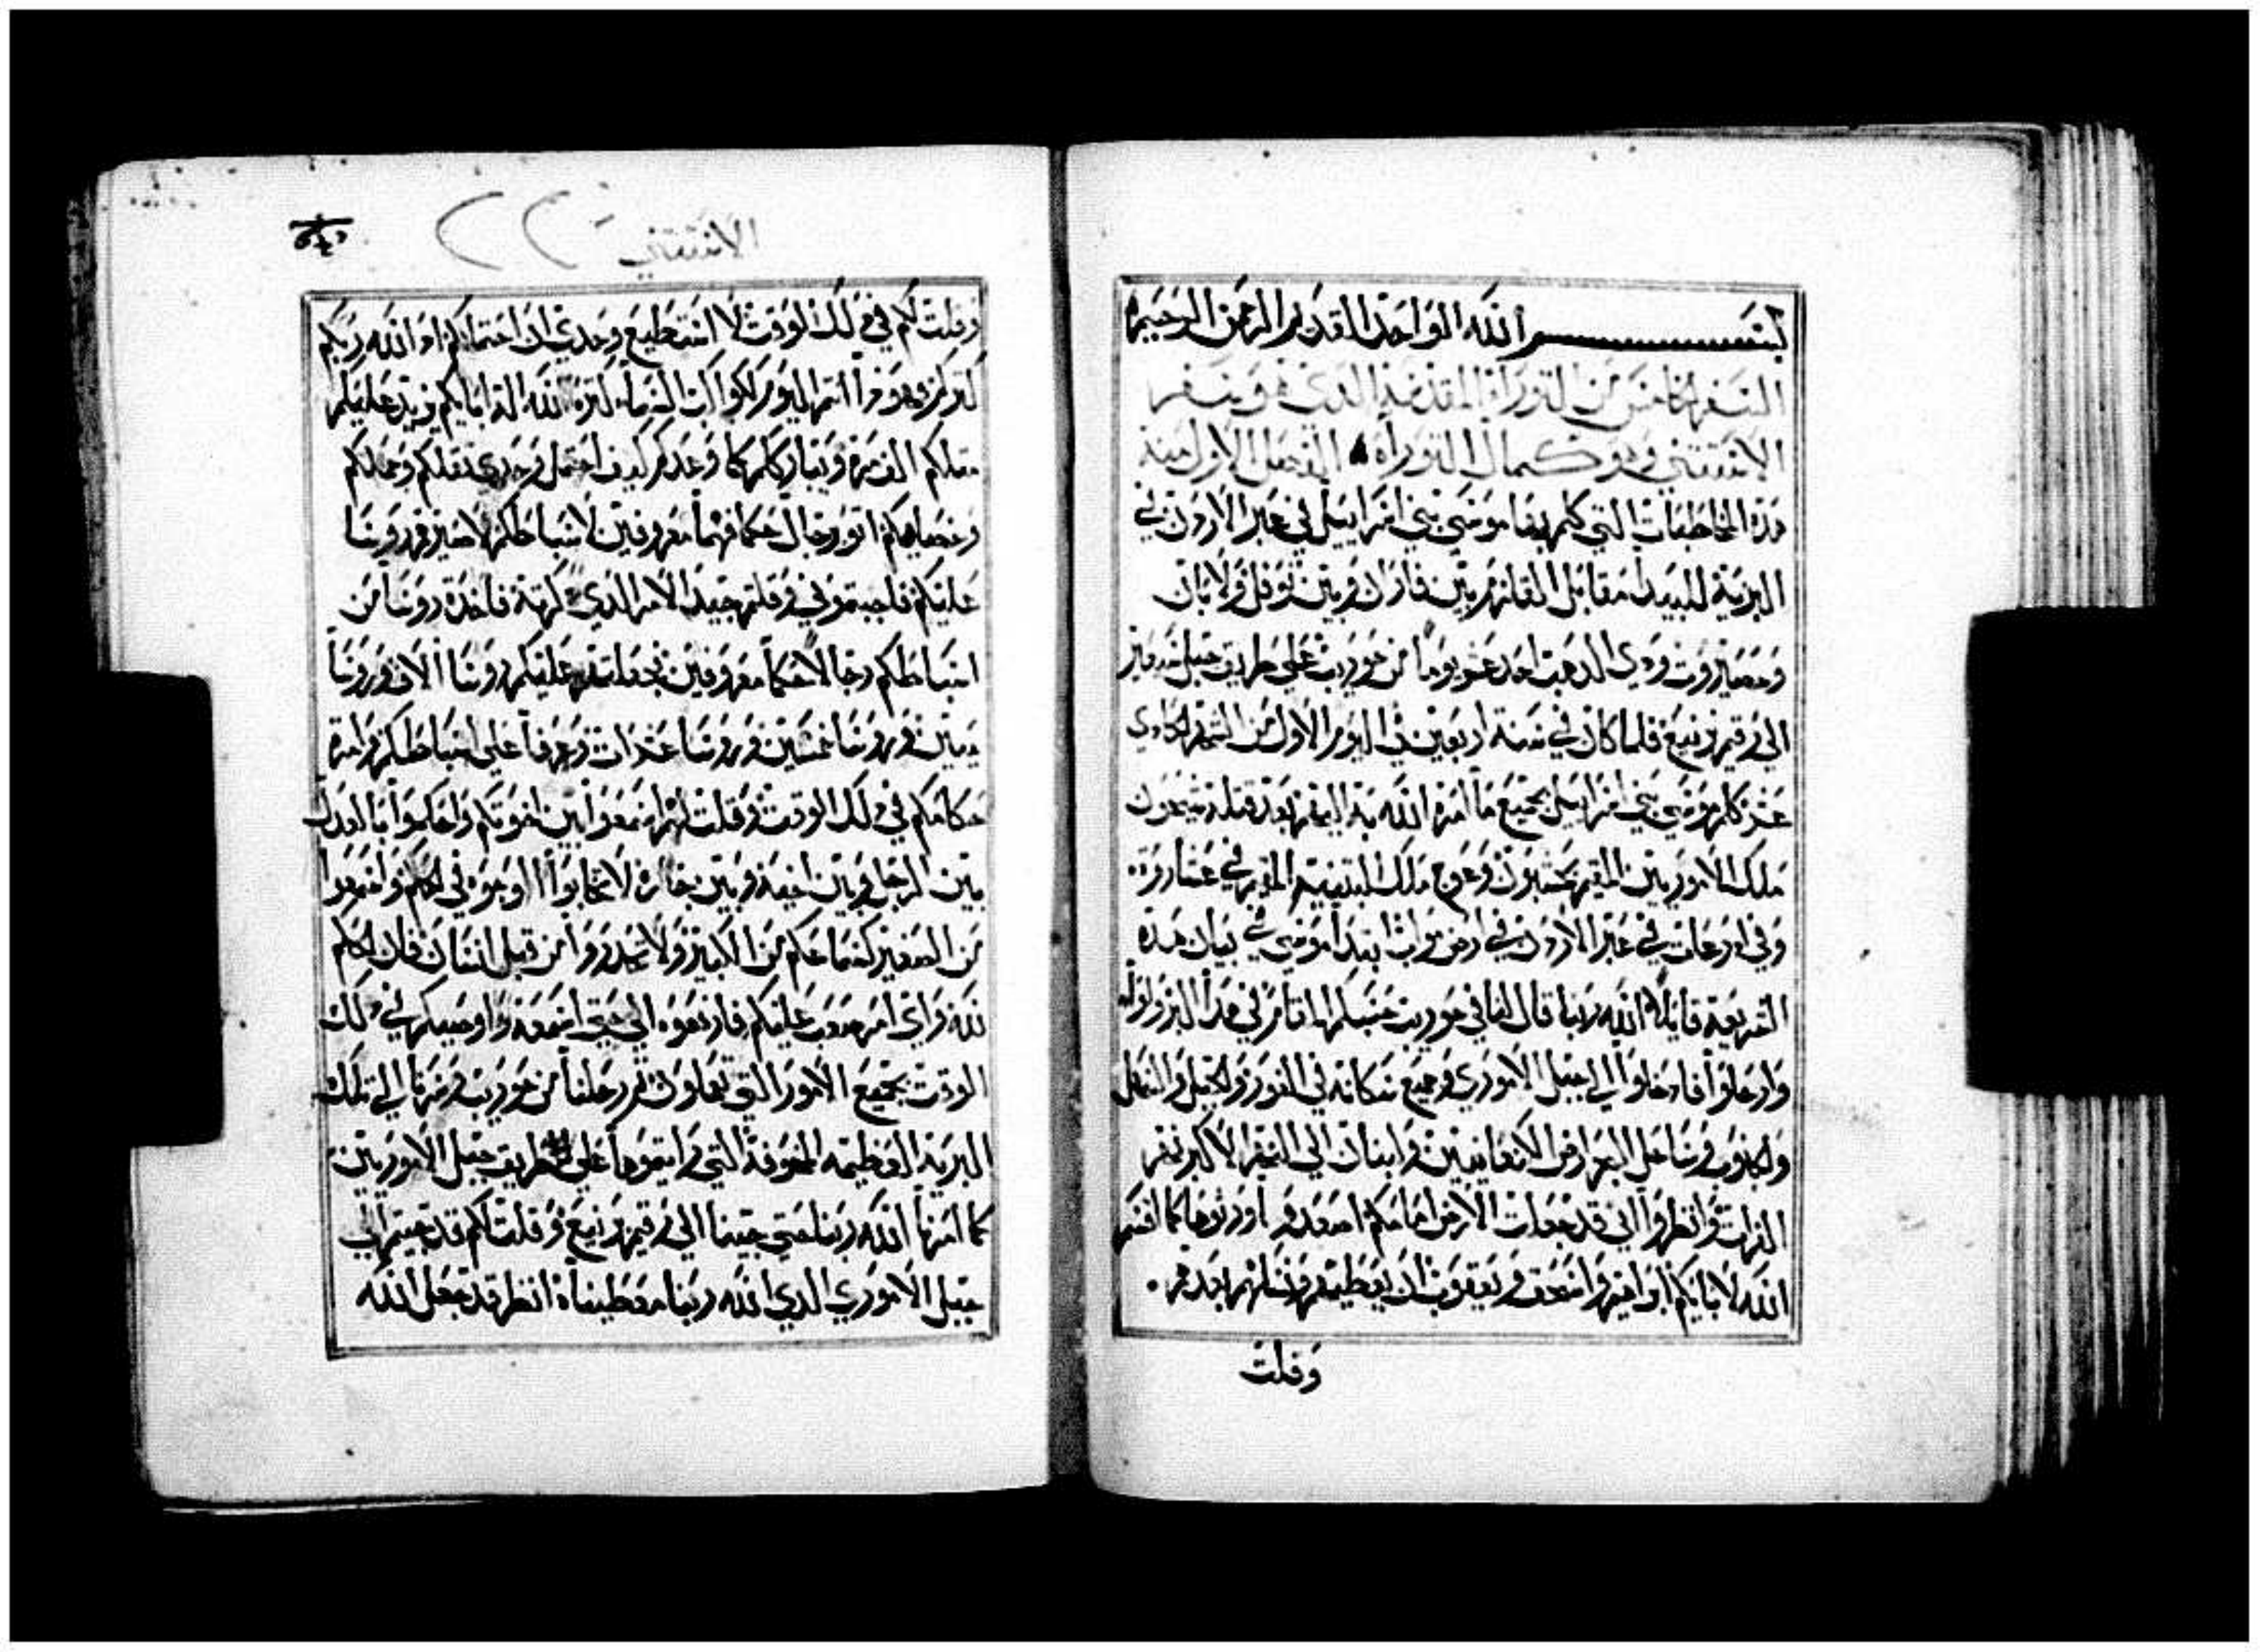 بسم الله الواحد القديم الرحمن الرحيم
السفر الخامس من التوراة المقدسة الدي هو سفر
الاستتني وهو كمال التوراه الفصل الاول منه
هذه المخاطبات التي كلم بها موسي بني اسراييل في عبر الاردن في
البرية البيدا مقابل القلزم بين فاران وبين توفل ولابان
وحصيروت ودي الدهب احد عشر يوما من حوريب علي طريق جبل
الي رقيم فلما كان في سنة اربعين في اليوم الاول من الشهر الحادي
عشر كلم موسي بني اسراييل بجميع ما امره الله به اليهم بعد قتله سيحون
ملك الاموريين المقيم بحشبون وعوج ملك البتنيه المقيم في عشاروت
وفي ادرعات في عبر الاردن في ارض مواب ابتدا موسي في بيان هده
الشريعة قايلا الله ربنا قال لنا في حوريب حسبكم المقام في هدا البر ولوا
وارحلوا فادخلوا الي جبل الاموري وجميع سكانه في الغور والجبل والسهل
والجنوب وساحل البحر ارض الكنعانيين ولبنان الي النهر الاكبر نهر
الفرات وانظروا اني قد جعلت الارض امامكم ادخلو اورثوها كما اقسم
الله لابايكم ابراهيم واسحق ويعقوب ان يعطيها لهم ونسلهم بعدهم
وقلت
الاستتني
وقلت لكم في دلك الوقت لا استطيع وحدي ان احتملكم اد الله ربكم
كتركم وهودا انتم اليوم ككواكب السما كترة الله اله ابايكم يزيد عليكم
متلكم الف مرة ويبارككم كما وعدكم كيف احتمل وحدي تقلكم وحملكم
وخصامكم اتوا برجال حكما فهما معروفين لاسباطكم لاصيرهم روسا
عليكم فاجبتموني وقلتم جيد الامر الدي دكرته فاخدت روسا من
اسباطكم رجالا حكما معروفين فجعلتهم عليكم روسا الاف وروسا
ميين وروسا خمسين وروسا عشرات وعرفا علي اسباطكم وامرت
حكامكم في دلك الوقت وقلت لهم اسمعوا بين اخوتكم واحكموا بالعدل
بين الرجل وبين اخيه وبين جاره لا تحابوا الوجوه في الحكم واسمعوا
من الصغير كسماعكم من الكبير ولا تحدروا من قبل انسان فان الحكم
لله واي امر صعب عليكم فارفعوه الي حتي اسمعه واوصيتكم في دلك
الوقت بجميع الامور التي تعملون تم رحلنا من حوريب وسرنا الي تلك
البرية العظيمه المخوفة التي رايتموها علي طريق جبل الاموريين
كما امرنا الله ربنا حتي جينا الي رقيم وقلت لكم قد جيتم الي
جبل الاموري الدي الله ربنا معطيناه انظر قد جعل الله